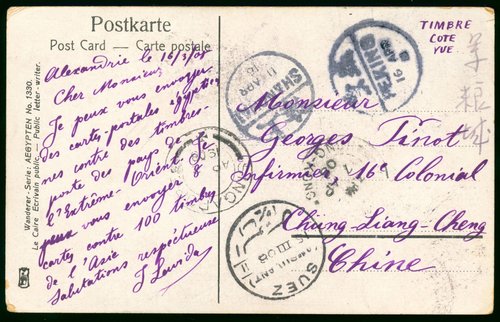 Postkarte
Post Card — Carte postale
Wanderer. Serie: AEGYPTEN No. 1330.
Le Caire Ecrivain public — Public letter-writer.
Alexandrie le 16/3/08
Cher Monsieur
Je peux vous envoyer
des cartes-postales égyptien
nes contre des timbres-
poste des pays de
l'Extrême-Orient. Je
peux vous envoyer 8
cartes contre 100 timbres
de l'Asie
Salutations respectueuses
TIMBRE
COTE
VUE.
Monsieur
Georges Tinot
Infirmier 16e Colonial
Chung-Liang-Cheng
Chine
PEKING
16
SHANGHAI
11 APR
SUEZ
AMBULANT
III 08
軍粮城